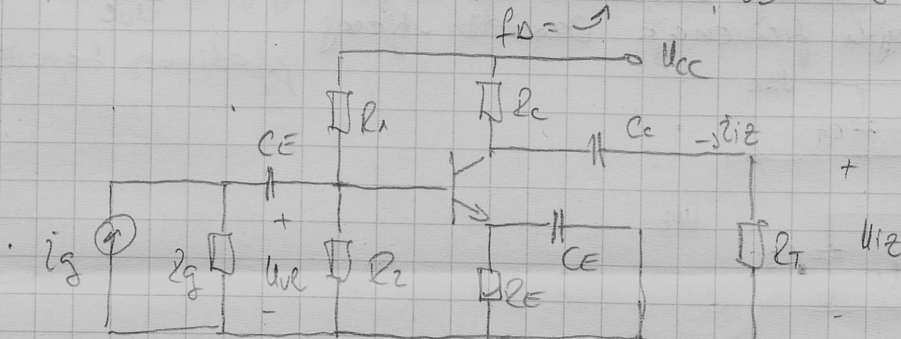 fD =
UCC
R1
RC
CE
CC
iiz
+
+
ig
Rg
Uul
R2
CE
RT
Uiz
RE
-
-